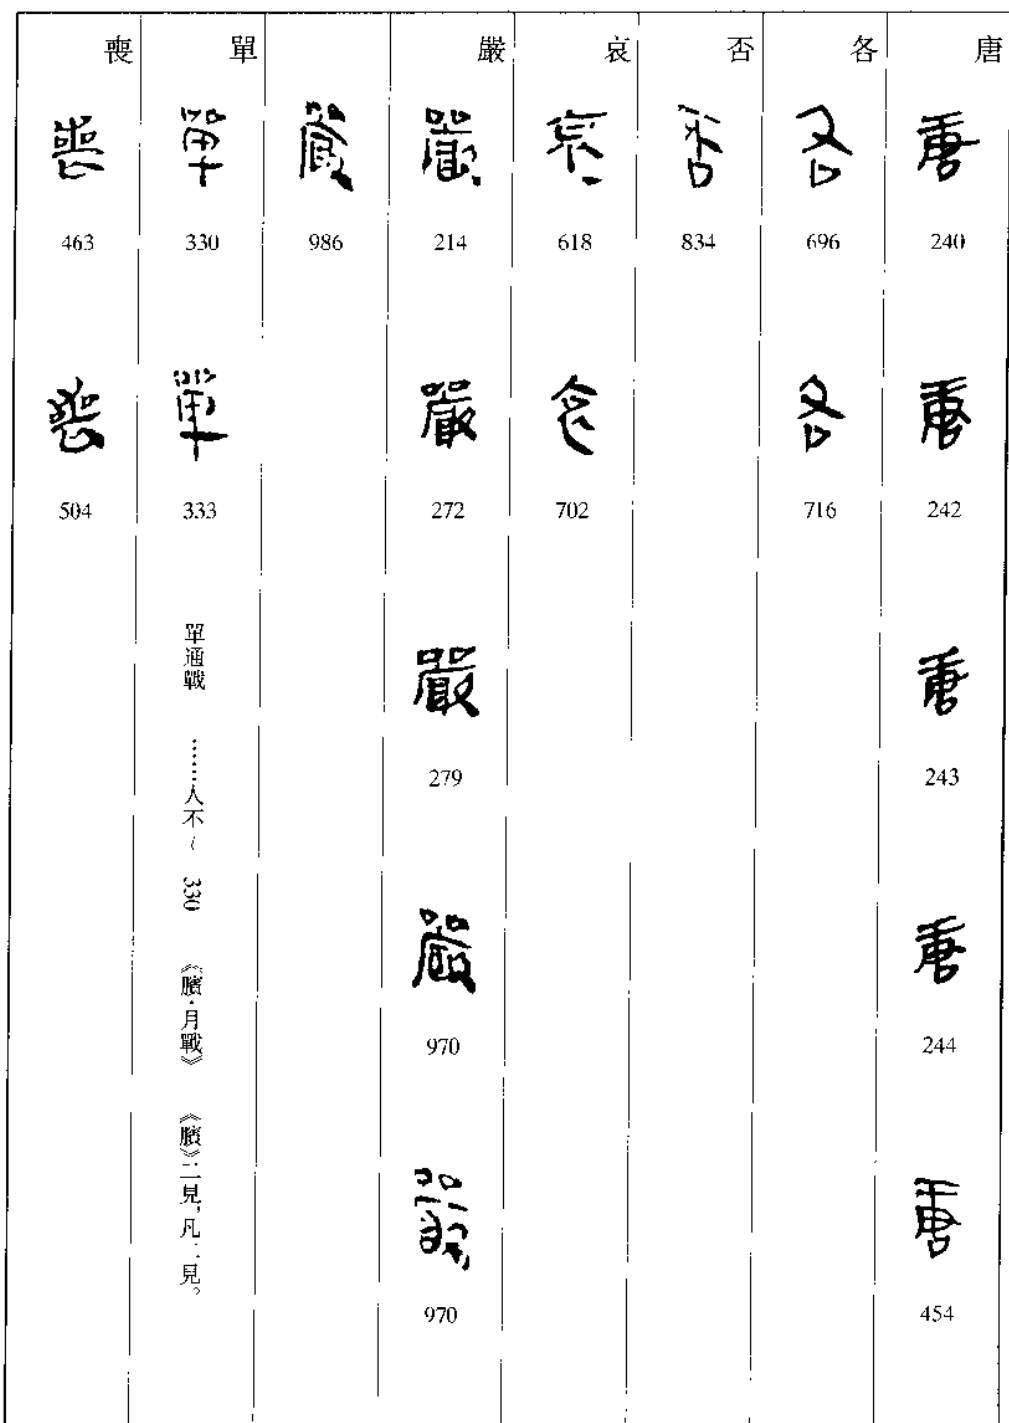 唐
唐 240
唐 242
唐 243
唐 244
唐 454
各
各 696
各 716
否
否 834
哀
哀 618
哀 702
嚴
嚴 214
嚴 272
嚴 279
嚴 970
嚴 970
嚴 986
單
單 330
單 333
單通戰 ……人不~ 330 《臏·月戰》 《臏》二見，凡二見。
喪
喪 463
喪 504